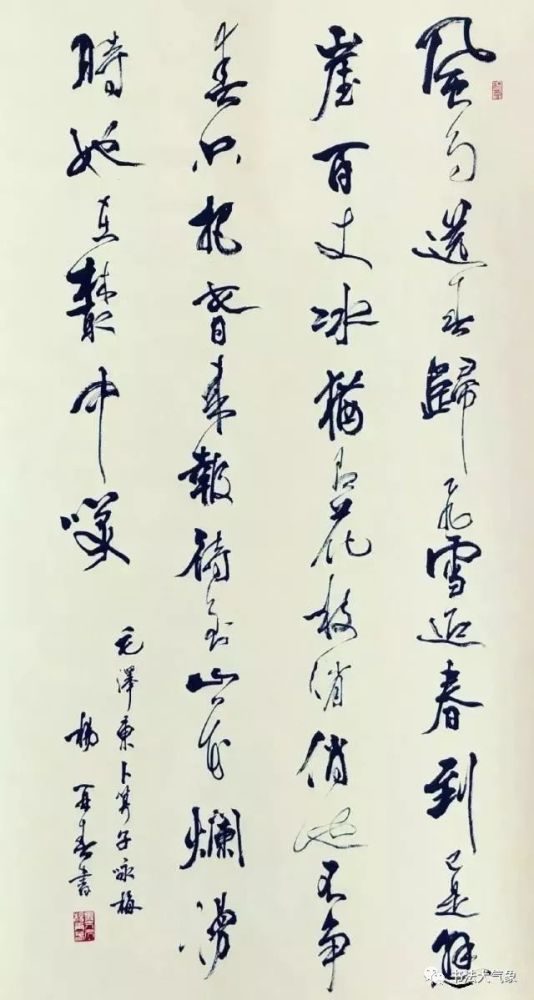 風雨送春歸飛雪迎春到已是懸
崖百丈冰猶有花枝俏俏也不争
春只把春來報待到山花爛漫
時她在叢中咲
毛澤東卜算子咏梅
楊再春書
书法大气象